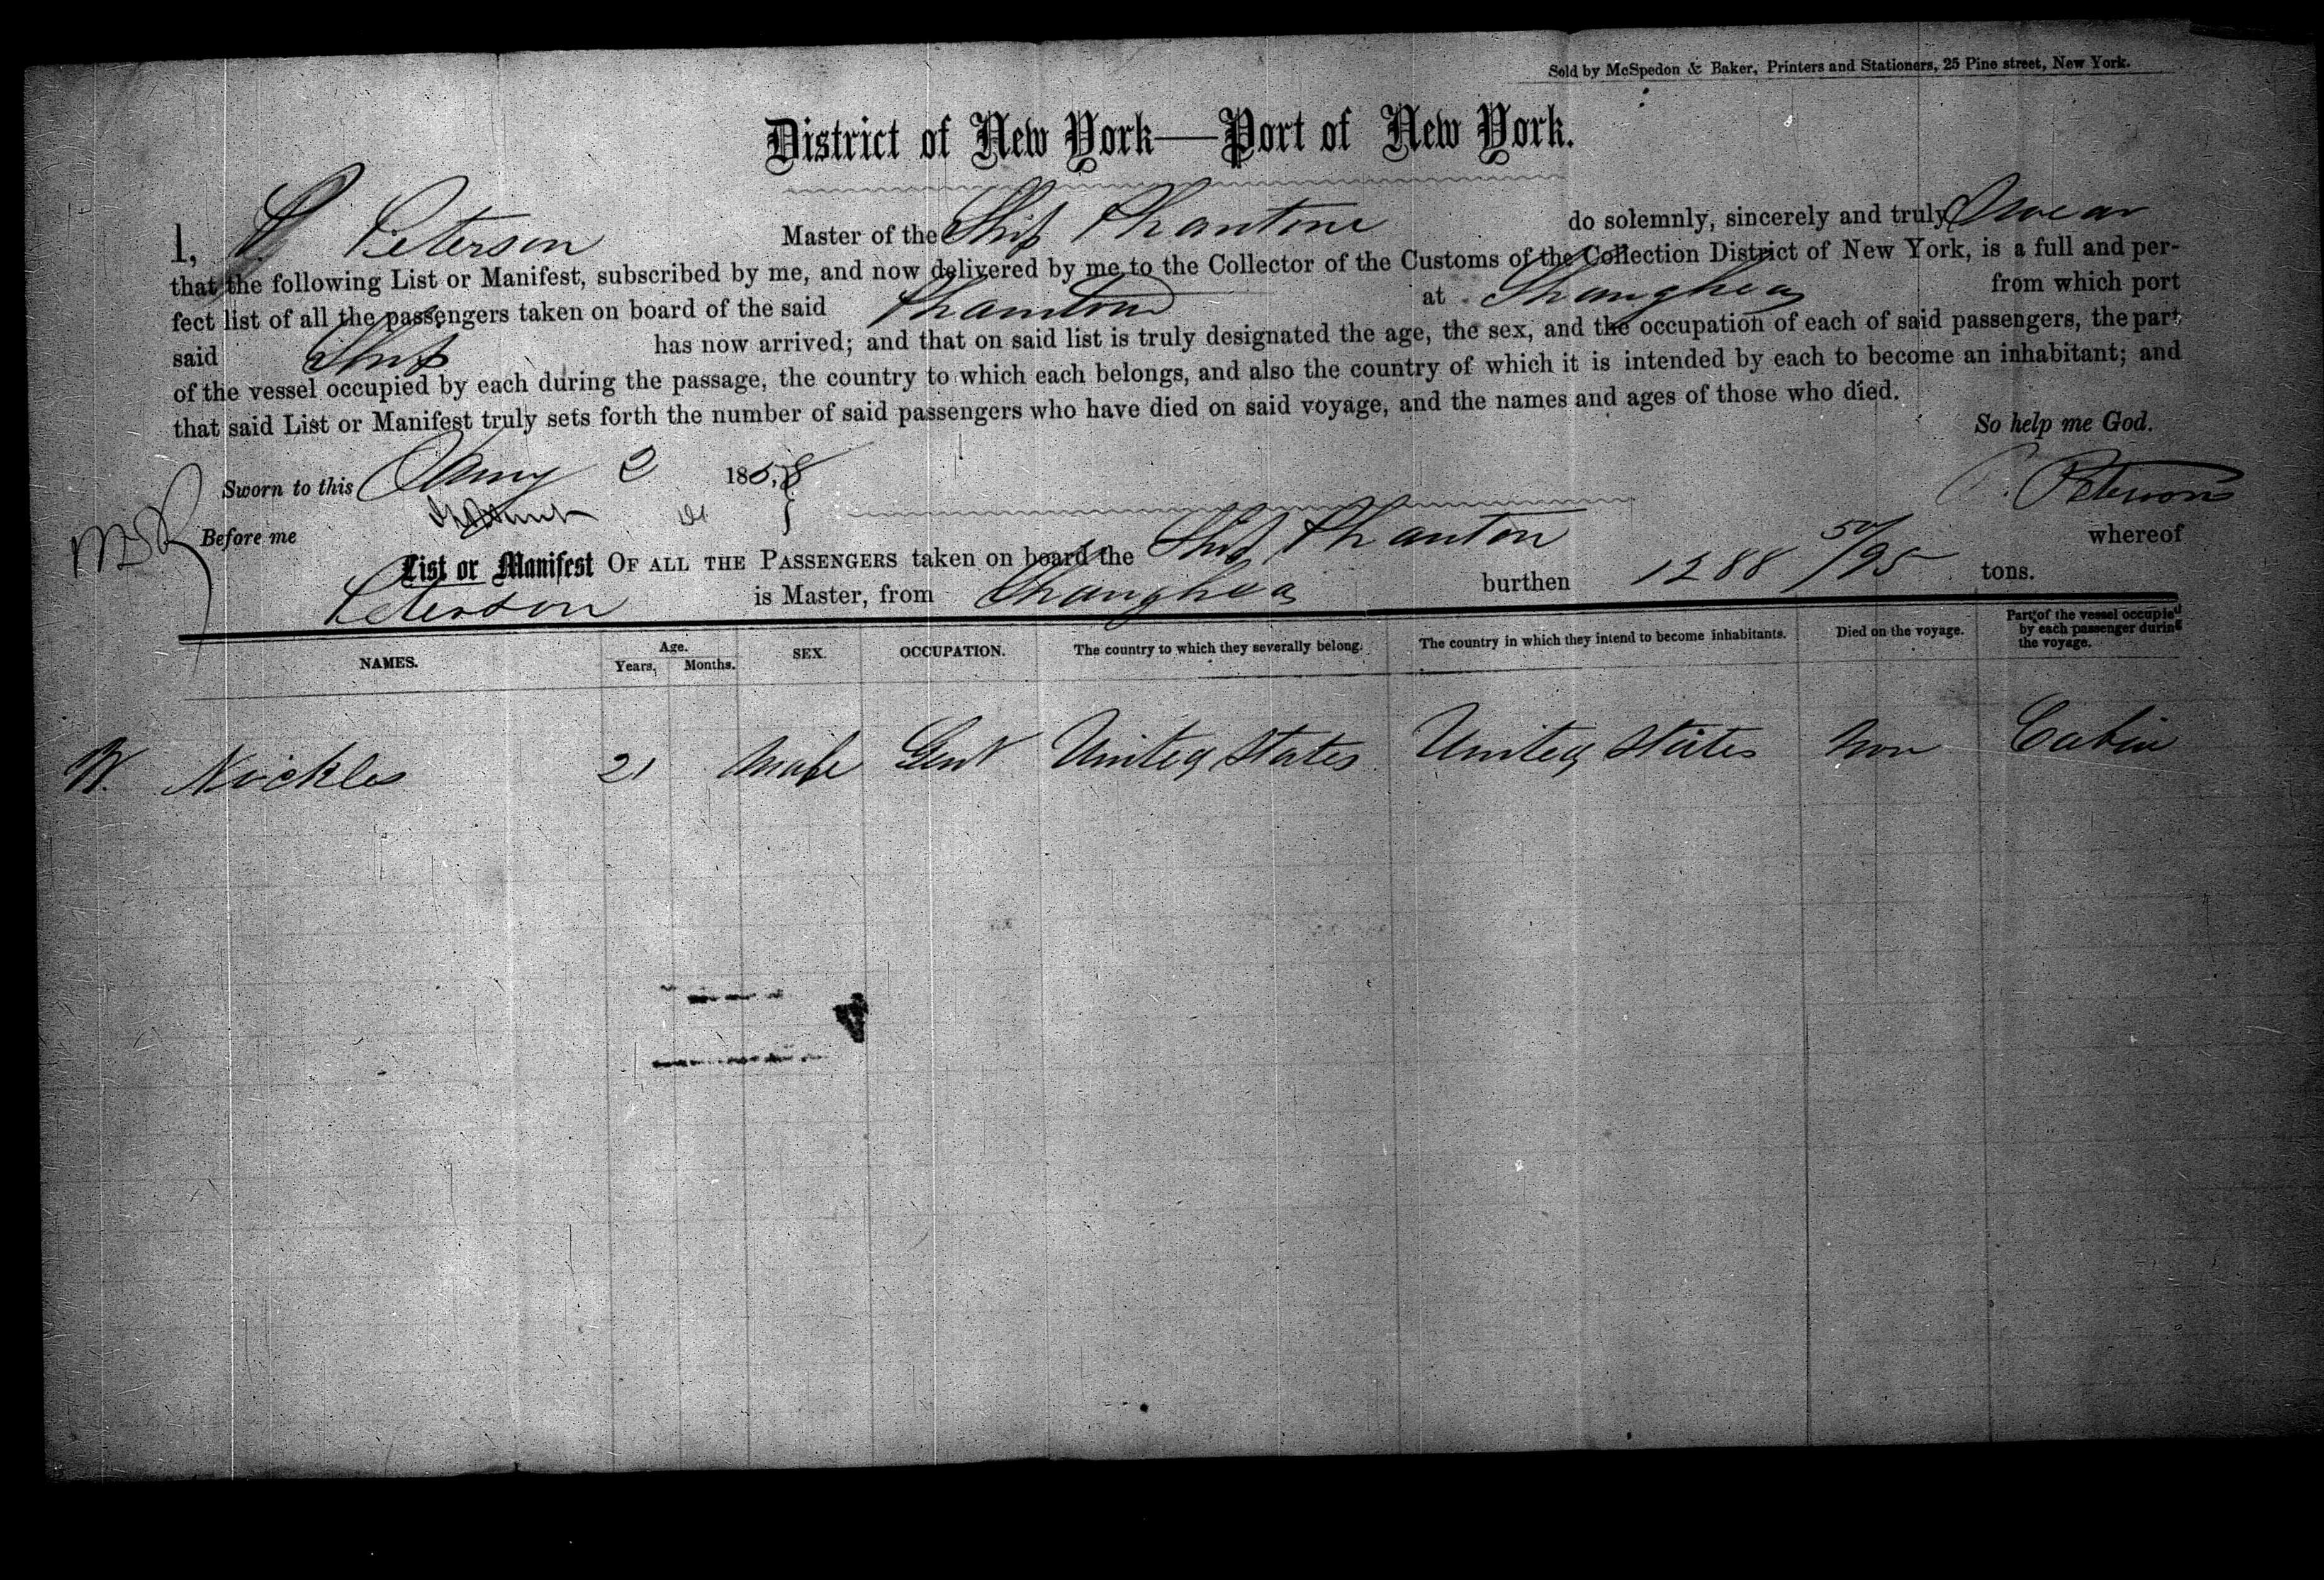 Sold by McSpedon & Baker, Printers and Stationers, 25 Pine street, New York.
District of New York—Port of New York.
I, Peterson Master of the Ship Phantone do solemnly, sincerely and truly Swear
that the following List or Manifest, subscribed by me, and now delivered by me to the Collector of the Customs of the Collection District of New York, is a full and per-
fect list of all the passengers taken on board of the said Phantom at Shanghea from which port
said Ship has now arrived; and that on said list is truly designated the age, the sex, and the occupation of each of said passengers, the part
of the vessel occupied by each during the passage, the country to which each belongs, and also the country of which it is intended by each to become an inhabitant; and
that said List or Manifest truly sets forth the number of said passengers who have died on said voyage, and the names and ages of those who died.
So help me God.
Sworn to this Jany 2 1858
Peterson
Before me
List or Manifest OF ALL THE PASSENGERS taken on board the Ship Phanton whereof
Peterson is Master, from Shanghea burthen 1288 50/95 tons.
NAMES. Age. Years. Months. SEX. OCCUPATION. The country to which they severally belong. The country in which they intend to become inhabitants. Died on the voyage. Part of the vessel occupied by each passenger during the voyage.
W. Nickles 21 Male Gent United States United States Non Cabin